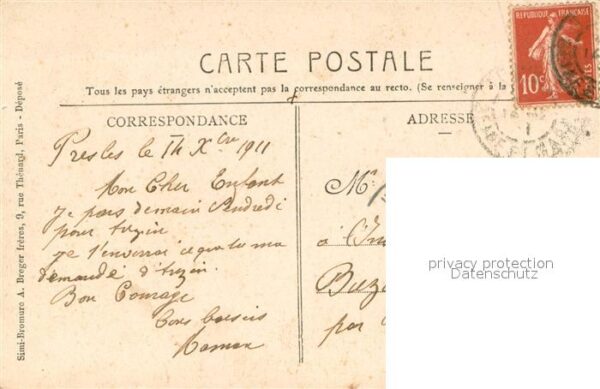 CARTE POSTALE
Tous les pays étrangers n'acceptent pas la correspondance au recto. (Se renseigner à la
REPUBLIQUE FRANÇAISE
10c
POSTES
CORRESPONDANCE
ADRESSE
Simi-Bromure A. Breger frères, 9, rue Thénard, Paris - Déposé
Presles le 14 Xbre 1911
Mon Cher Enfant
Je pars demain Vendredi
pour
je t'enverrai ce que tu m'a
demandé d'
Bon Courage
Bons baisers
Maman
M
à
par
privacy protection
Datenschutz